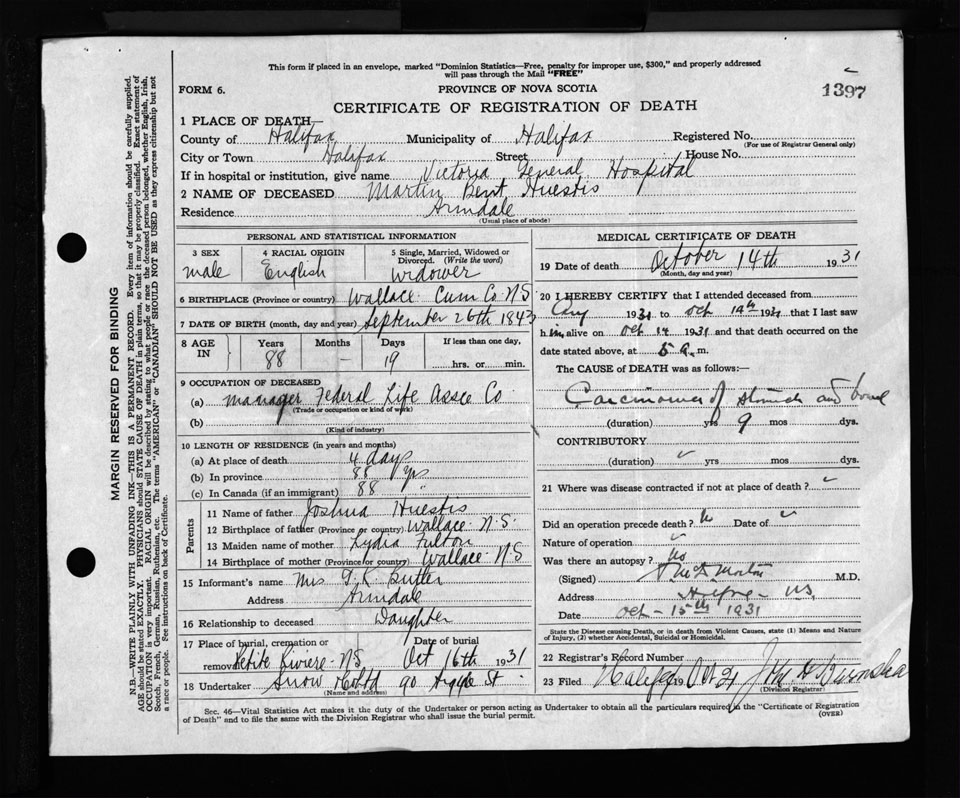 This form if placed in an envelope, marked "Dominion Statistics—Free, penalty for improper use, $300," and properly addressed
will pass through the Mail "FREE"
FORM 6.
PROVINCE OF NOVA SCOTIA
1397
CERTIFICATE OF REGISTRATION OF DEATH
1 PLACE OF DEATH—
County of Halifax Municipality of Halifax Registered No.
(For use of Registrar General only)
City or Town Halifax Street House No.
If in hospital or institution, give name Victoria General Hospital
2 NAME OF DECEASED Martin Bent Huestis
Residence Armdale
(Usual place of abode)
PERSONAL AND STATISTICAL INFORMATION
3 SEX
male
4 RACIAL ORIGIN
English
5 Single, Married, Widowed or
Divorced. (Write the word)
widower
6 BIRTHPLACE (Province or country) Wallace Cum Co NS
7 DATE OF BIRTH (month, day and year) September 26th 1843
8 AGE
IN
Years
88
Months
-
Days
19
If less than one day,
hrs. or min.
9 OCCUPATION OF DECEASED
(a) Manager Federal Life Assce Co
(Trade or occupation or kind of work)
(b)
(Kind of industry)
10 LENGTH OF RESIDENCE (in years and months)
(a) At place of death 4 days
(b) In province 88 yrs
(c) In Canada (if an immigrant) 88 "
Parents
11 Name of father Joshua Huestis
12 Birthplace of father (Province or country) Wallace N.S.
13 Maiden name of mother Lydia Fulton
14 Birthplace of mother (Province or country) Wallace NS
15 Informant's name Mrs Butler
Address Armdale
16 Relationship to deceased Daughter
17 Place of burial, cremation or
removal Petite Riviere NS
Date of burial
Oct 16th 1931
18 Undertaker Snow & Co Ltd 90 Argyle St
(Name and address)
MEDICAL CERTIFICATE OF DEATH
19 Date of death October 14th 1931
(Month, day and year)
20 I HEREBY CERTIFY that I attended deceased from
Aug 1931 to Oct 14th 1931 that I last saw
him alive on Oct 14 1931 and that death occurred on the
date stated above, at 5 a.m.
The CAUSE of DEATH was as follows:—
Carcinoma of stomach and bowel
(duration) yrs 9 mos dys.
CONTRIBUTORY
(duration) yrs mos dys.
21 Where was disease contracted if not at place of death?
Did an operation precede death? Date of
Nature of operation
Was there an autopsy? No
(Signed) M.D.
Address
Date Oct - 15th 1931
State the Disease causing Death, or in death from Violent Causes, state (1) Means and Nature
of Injury, (2) whether Accidental, Suicidal or Homicidal.
22 Registrar's Record Number
23 Filed Halifax 19 Oct 21
(Division Registrar)
Sec. 46—Vital Statistics Act makes it the duty of the Undertaker or person acting as Undertaker to obtain all the particulars required in the "Certificate of Registration
of Death" and to file the same with the Division Registrar who shall issue the burial permit.
(OVER)
MARGIN RESERVED FOR BINDING
N.B.—WRITE PLAINLY WITH UNFADING INK—THIS IS A PERMANENT RECORD. Every item of information should be carefully supplied.
AGE should be stated EXACTLY. PHYSICIANS should STATE CAUSE OF DEATH in plain terms, so that it may be properly classified. Exact statement of
OCCUPATION is very important. RACIAL ORIGIN will be described by stating to what people or race the deceased person belonged, whether English, Irish,
Scotch, French, German, Russian, Ruthenian, etc. The terms "AMERICAN" or "CANADIAN" SHOULD NOT BE USED as they express citizenship but not
a race or people. See instructions on back of Certificate.